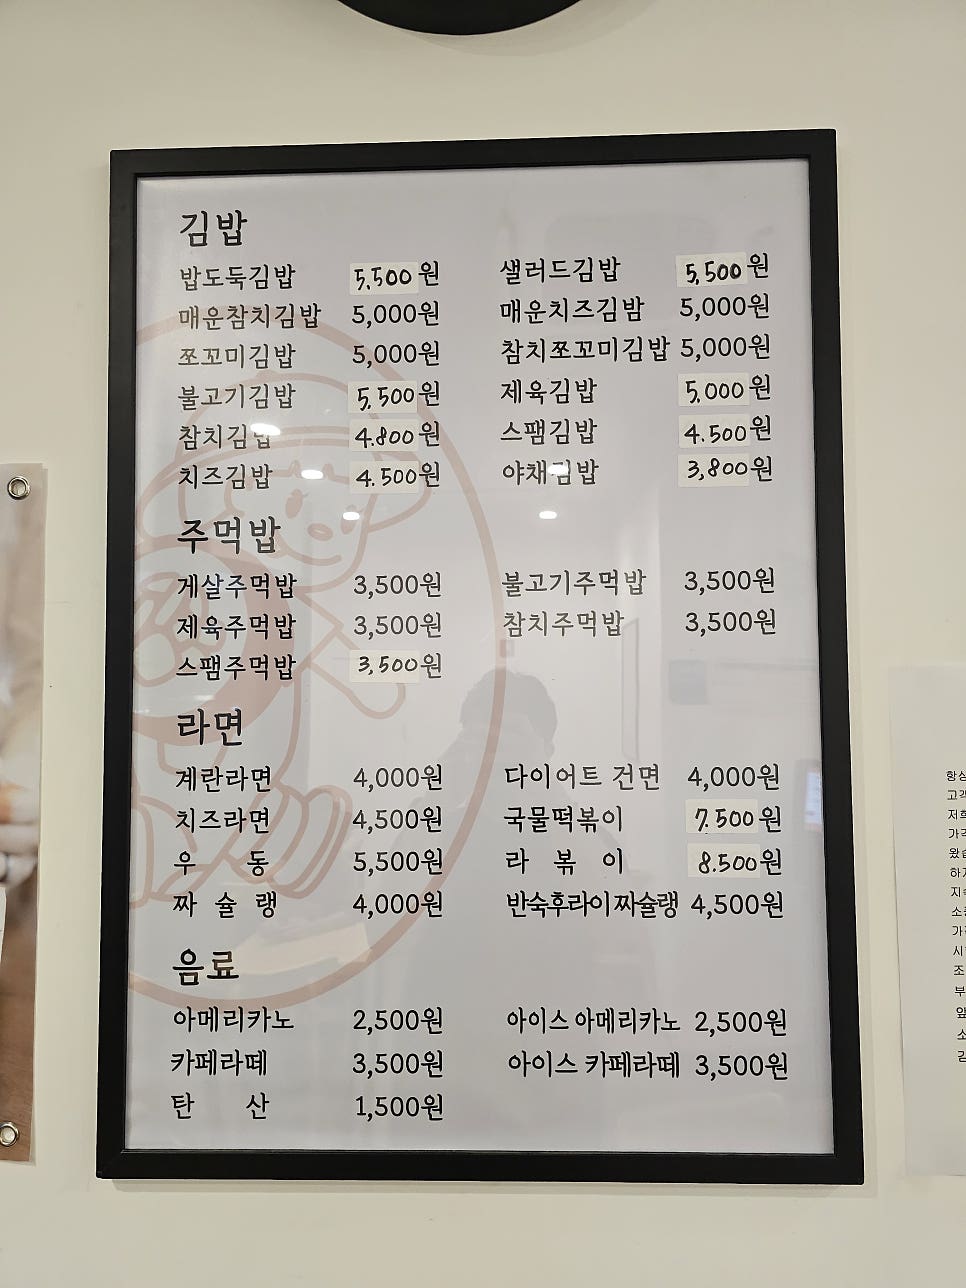 김밥
밥도둑김밥 5,500원 샐러드김밥 5,500원
매운참치김밥 5,000원 매운치즈김밥 5,000원
쪼꼬미김밥 5,000원 참치쪼꼬미김밥 5,000원
불고기김밥 5,500원 제육김밥 5,000원
참치김밥 4.800원 스팸김밥 4.500원
치즈김밥 4.500원 야채김밥 3,800원
주먹밥
게살주먹밥 3,500원 불고기주먹밥 3,500원
제육주먹밥 3,500원 참치주먹밥 3,500원
스팸주먹밥 3,500원
라면
계란라면 4,000원 다이어트 건면 4,000원
치즈라면 4,500원 국물떡볶이 7.500원
우 동 5,500원 라 볶 이 8.500원
짜 슐 랭 4,000원 반숙후라이짜슐랭 4,500원
음료
아메리카노 2,500원 아이스 아메리카노 2,500원
카페라떼 3,500원 아이스 카페라떼 3,500원
탄 산 1,500원
항상
고객
저희
가격
왔습
하지
지속
소
가
시
조
부
앞
소